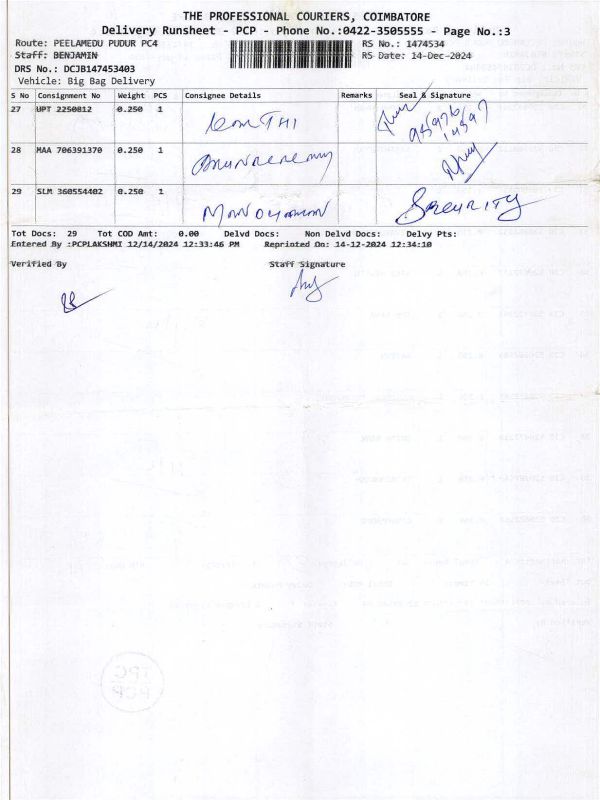 THE PROFESSIONAL COURIERS, COIMBATORE
Delivery Runsheet - PCP - Phone No.:0422-3505555 - Page No.:3
Route: PEELAMEDU PUDUR PC4 RS No.: 1474534
Staff: BENJAMIN RS Date: 14-Dec-2024
DRS No.: DCJB147453403
Vehicle: Big Bag Delivery
S No Consignment No Weight PCS Consignee Details Remarks Seal & Signature
27 UPT 2250812 0.250 1
28 MAA 706391370 0.250 1
29 SLM 360554402 0.250 1 SECURITY
Tot Docs: 29 Tot COD Amt: 0.00 Delvd Docs: Non Delvd Docs: Delvy Pts:
Entered By :PCPLAKSHMI 12/14/2024 12:33:46 PM Reprinted On: 14-12-2024 12:34:10
Verified By Staff Signature